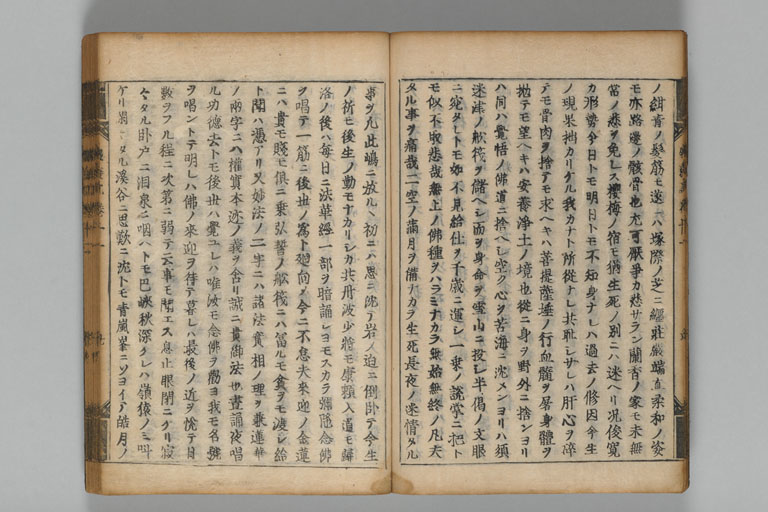 ノ紺青ノ髪筋モ遂ニハ塚際ノ芝ニ纏莊嚴端直柔和ノ姿
モ亦路邊ノ骸骨也尤可厭爭カ愁サラン蘭香ノ家モ未無
常ノ悲ヲ免レス櫻梅ノ宿モ猶生死ノ別ニハ迷ヘリ况俊寛
カ形勢今日トモ明日トモ不知身ナレハ過去ノ修因今生
ノ現果拙カリケル我カナト所從ナレ共耻シサレハ肝心ヲ碎
テモ骨肉ヲ捨テモ求ヘキハ菩提薩埵ノ行血髓ヲ屠身體ヲ
拋テモ望ヘキハ安養淨土ノ境也從ニ身ヲ野外ニ捨ンヨリ
ハ同ハ覺悟ノ佛道ニ捨ヘシ空ク心ヲ苦海ニ沈メンヨリハ須
迷津ノ舩筏ヲ儲ヘシ而ヲ身命ヲ雪山ニ投シ半偈ノ文眼
ニ宛タレトモ如不見給仕ヲ千歳ニ運シ一乗ノ説掌ニ把ト
モ似不取悲哉無上ノ佛種ヲハラミナカラ無始無終ノ凡夫
タル事ヲ痛哉二空ノ滿月ヲ備ナカラ生死長夜ノ迷情タル
事ヲ凡此嶋ニ放ルヽ初ニハ思ニ沈テ岩ノ迫ニ倒臥テ今生
ノ祈モ後生ノ勤モナカリシカ共丹波少將モ康頼入道モ歸
洛ノ後ハ毎日ニ法華經一部ヲ暗誦シヨモスカラ彌陀念佛
ヲ唱テ一筋ニ後世ノ爲ト廻向ス今ニ不怠夫來迎ノ金蓮
ニハ貴モ賤モ倶ニ乗弘誓ノ舩筏ニハ冨ルモ貧ヲモ渡シ給
ト聞ハ憑アリ又妙法ノ二字ニハ諸法實相ノ理ヲ兼蓮華
ノ兩字ニハ權實本迹ノ義ヲ含リ誠ニ貴御法也晝誦夜唱
ル功徳去トモ後世ハ覺ユレハ唯汝モ念佛ヲ勸ヨ我モ名號
ヲ唱ントテ明レハ佛ノ來迎ヲ待テ暮レハ最後ノ近ヲ悦テ日
數ヲフル程ニ次第ニ弱テ云事モ聞エス息止眼閉ニケリ寂
タル臥戸ニ泪泉ニ咽ハトモ巴峽秋深ケレハ嶺猿ノミ叫
ケリ タル溪谷ニ思歎ニ沈トモ青嵐峯ニソヨイテ皓月ノ